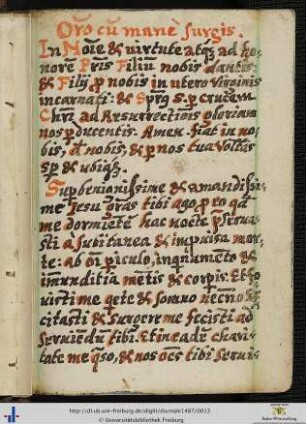 Oro cū mane surgis.
In Noie & virtute atq; ad ho-
nore Pris Filiūm nobis dantis:
& Filij p nobis in utero Virginis
incarnati: & Sprg S. p crucem
Chri ad Resurrectiois gloriam
nos pducentis. Amen. fiat in no-
bis, & nobis, & p nos tua Volūtas
Sp & ubiq;.
Supbenignissime & amandissi-
me Jesu gras tibi ago, p eo qd
me dormiētē hac nocte pserua-
sti a subitanea & impuisa mor-
te: ab oi piculo, inquinamēto &
imūnditia mētis & corpis: Et
uisti me qete & somno
citasti & surgere me fecisti ad
seruiendū tibi. Et in eadē chari-
tate me qso, & nos oes tibi seruis
http://dl.ub.uni-freiburg.de/diglit/diurnale1487/0013
© Universitätsbibliothek Freiburg
Baden-Württemberg